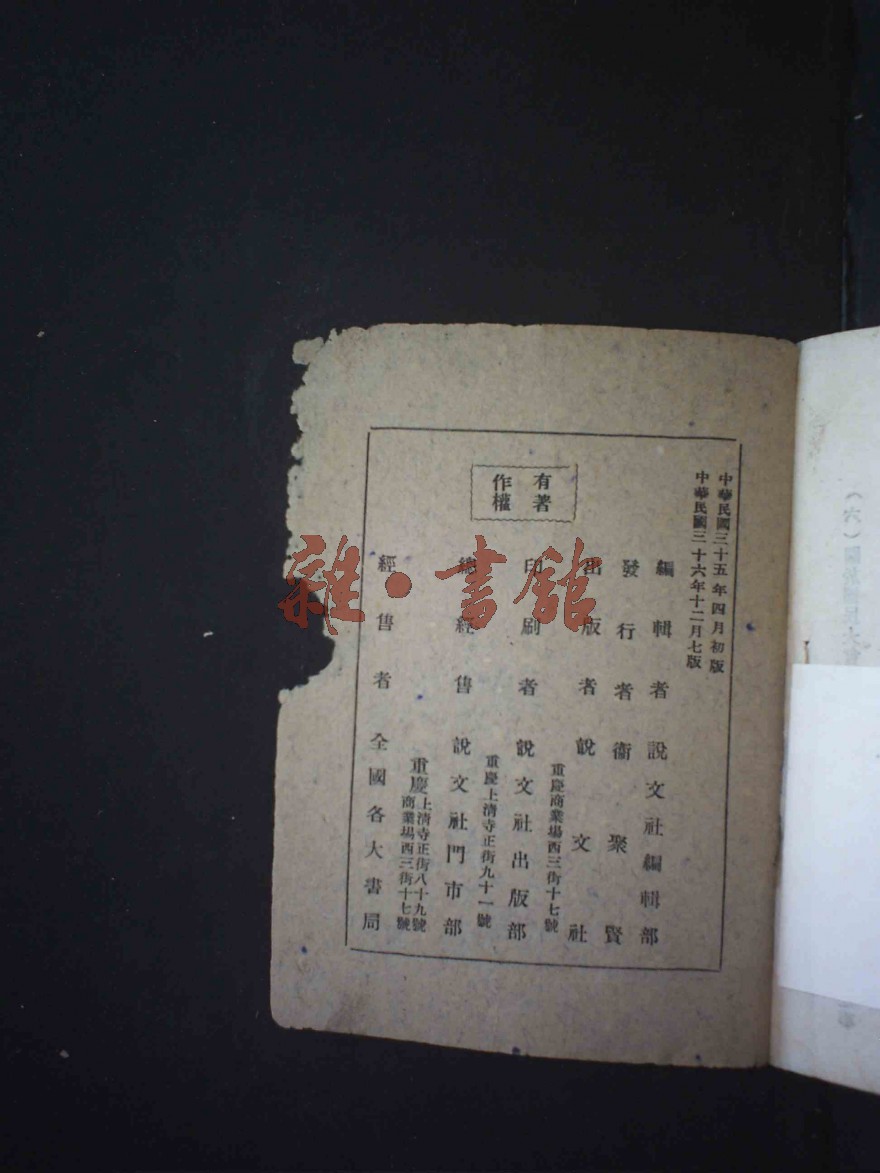 中華民國三十五年四月初版
中華民國三十六年十二月七版
編輯者說文社編輯部
發行者衞聚賢
出版者說文社
重慶商業場西三街十七號
有著
作權
印刷者說文社出版部
重慶上清寺正街九十一號
總經售說文社門市部
重慶上清寺正街八十九號
商業場西三街十七號
經售者全國各大書局
雜·書館